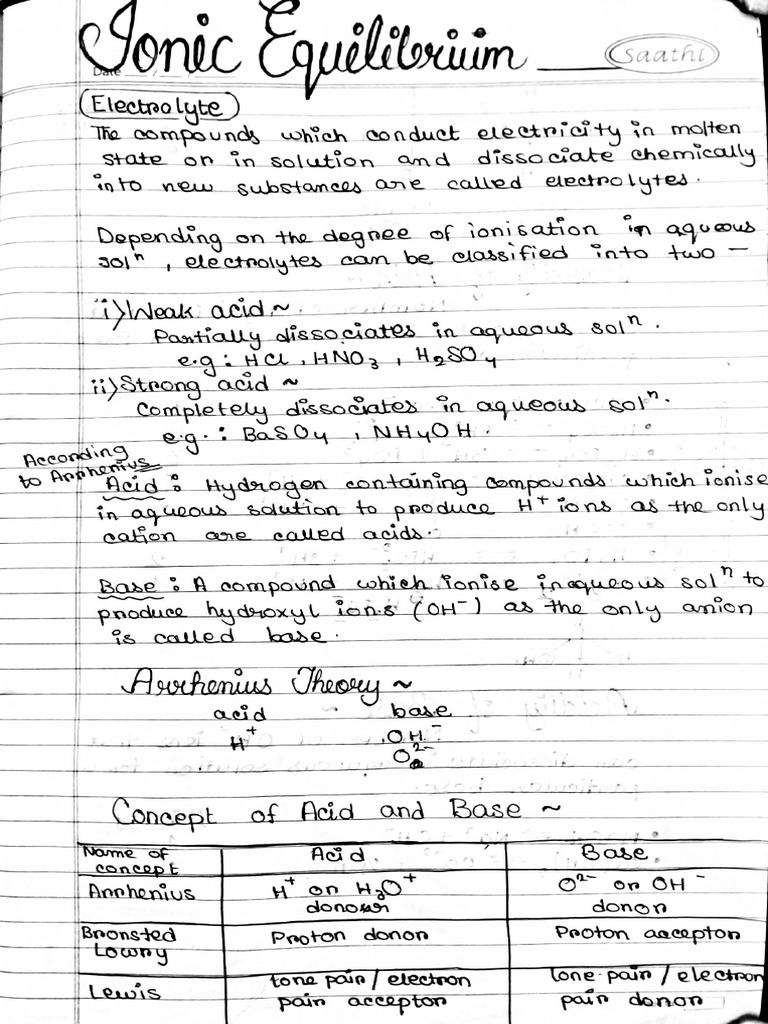 Ionic Equilibrium
Saathi
Date
Electrolyte
The compounds which conduct electricity in molten
state or in solution and dissociate chemically
into new substances are called electrolytes.
Depending on the degree of ionisation in aqueous
solⁿ, electrolytes can be classified into two –
i) Weak acid ~
Partially dissociates in aqueous solⁿ.
e.g : HCl , HNO₃ , H₂SO₄
ii) Strong acid ~
Completely dissociates in aqueous solⁿ.
e.g. : BaSO₄ , NH₄OH .
According
to Arrhenius
Acid : Hydrogen containing compounds which ionise
in aqueous solution to produce H⁺ ions as the only
cation are called acids.
Base : A compound which ionise in aqueous solⁿ to
produce hydroxyl ions (OH⁻) as the only anion
is called base.
Arrhenius Theory ~
acid base
H⁺ OH⁻
O²⁻
Concept of Acid and Base ~
Name of concept Acid Base
Arrhenius H⁺ or H₃O⁺ donor O²⁻ or OH⁻ donor
Bronsted Lowry Proton donor Proton acceptor
Lewis lone pair / electron pair acceptor lone pair / electron pair donor